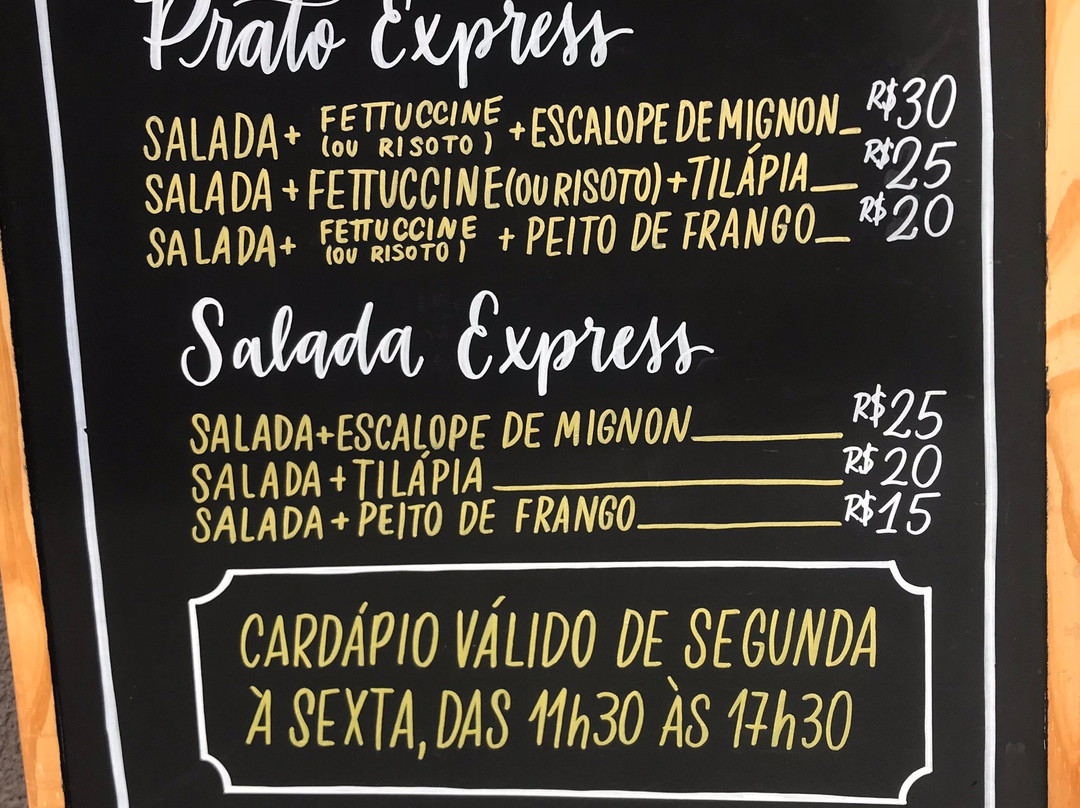 Prato Express
SALADA + FETTUCCINE (OU RISOTO) + ESCALOPE DE MIGNON_ R$30
SALADA + FETTUCCINE (OU RISOTO) + TILÁPIA_ R$25
SALADA + FETTUCCINE (OU RISOTO) + PEITO DE FRANGO_ R$20
Salada Express
SALADA+ESCALOPE DE MIGNON_ R$25
SALADA+TILÁPIA_ R$20
SALADA+PEITO DE FRANGO_ R$15
CARDÁPIO VÁLIDO DE SEGUNDA
À SEXTA, DAS 11h30 ÀS 17h30